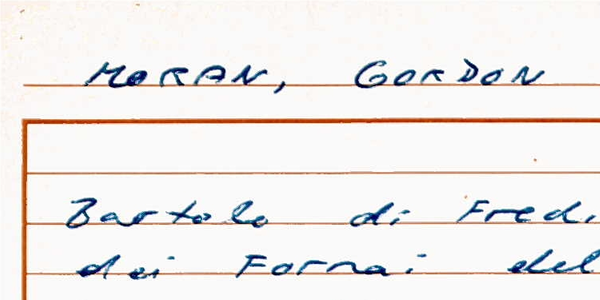 MORAN, GORDON
Bartolo di Fredi
dei Fornai del